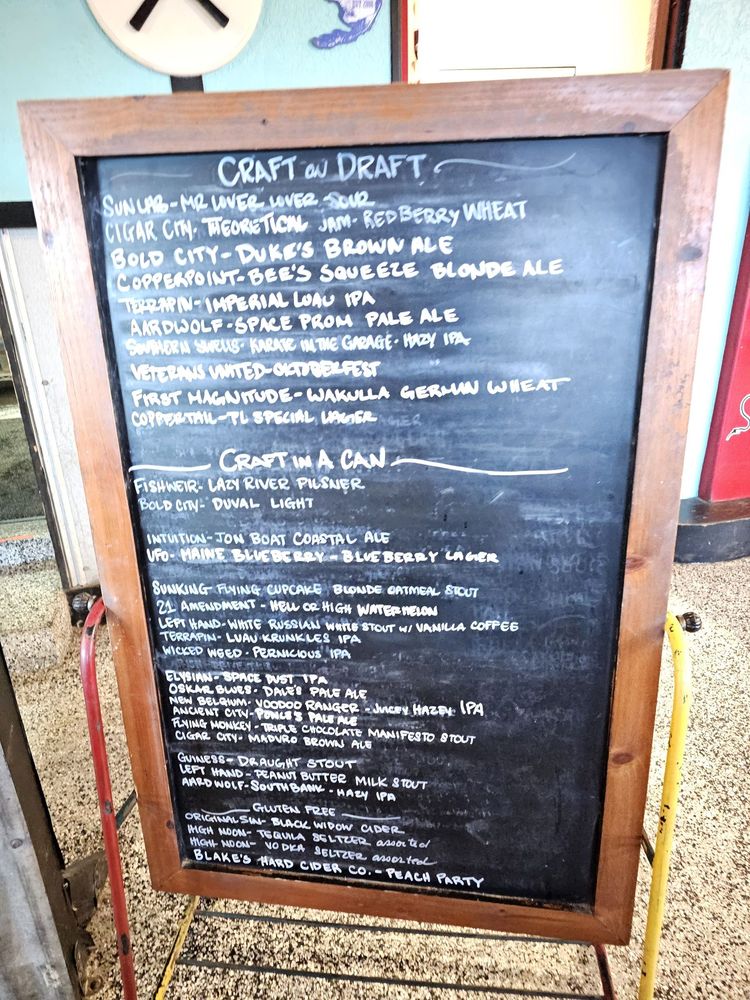 CRAFT ON DRAFT
SUN LAB - MR LOVER LOVER - SOUR
CIGAR CITY - THEORETICAL JAM - RED BERRY WHEAT
BOLD CITY - DUKE'S BROWN ALE
COPPERPOINT - BEE'S SQUEEZE BLONDE ALE
TERRAPIN - IMPERIAL LUAU IPA
AARDWOLF - SPACE PROM PALE ALE
SOUTHERN SWELLS - KARATE IN THE GARAGE - HAZY IPA
VETERANS UNITED - OKTOBERFEST
FIRST MAGNITUDE - WAKULLA GERMAN WHEAT
COPPERTAIL - TL SPECIAL LAGER
CRAFT IN A CAN
FISHWEIR - LAZY RIVER PILSNER
BOLD CITY - DUVAL LIGHT
INTUITION - JON BOAT COASTAL ALE
UFO - MAINE BLUEBERRY - BLUEBERRY LAGER
SUNKING FLYING CUPCAKE BLONDE OATMEAL STOUT
21 AMENDMENT - HELL OR HIGH WATERMELON
LEFT HAND - WHITE RUSSIAN WHITE STOUT W/ VANILLA COFFEE
TERRAPIN - LUAU KRUNKLES IPA
WICKED WEED - PERNICIOUS IPA
ELYSIAN - SPACE DUST IPA
OSKAR BLUES - DALE'S PALE ALE
NEW BELGIUM - VOODOO RANGER - JUICY HAZEY IPA
ANCIENT CITY - PONCE'S PALE ALE
FLYING MONKEY - TRIPLE CHOCOLATE MANIFESTO STOUT
CIGAR CITY - MADURO BROWN ALE
GUINESS - DRAUGHT STOUT
LEFT HAND - PEANUT BUTTER MILK STOUT
AARDWOLF - SOUTHBANK - HAZY IPA
GLUTEN FREE
ORIGINAL SIN - BLACK WIDOW CIDER
HIGH NOON - TEQUILA SELTZER assorted
HIGH-NOON - VODKA SELTZER assorted
BLAKE'S HARD CIDER CO. - PEACH PARTY